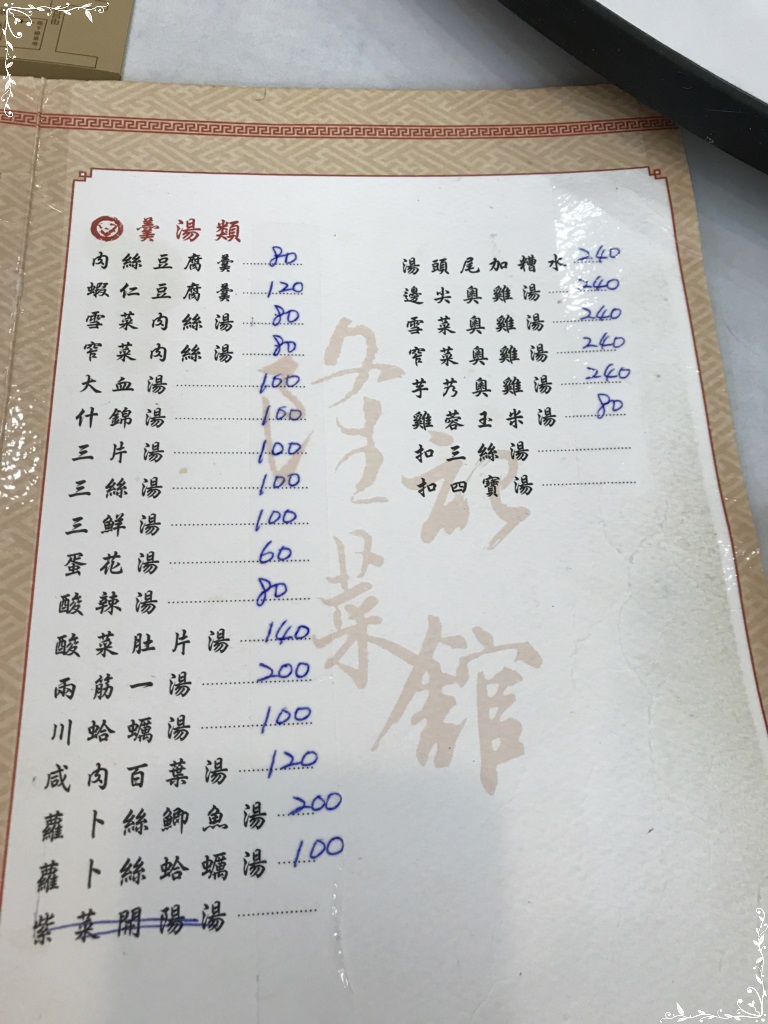 羹湯類
肉絲豆腐羹 80
蝦仁豆腐羹 120
雪菜肉絲湯 80
窄菜肉絲湯 80
大血湯 100
什錦湯 100
三片湯 100
三絲湯 100
三鮮湯 100
蛋花湯 60
酸辣湯 80
酸菜肚片湯 140
兩筋一湯 200
川蛤蠣湯 100
咸肉百葉湯 120
蘿卜絲鯽魚湯 200
蘿卜絲蛤蠣湯 100
紫菜開陽湯
湯頭尾加糟水 240
邊尖奧雞湯 240
雪菜奧雞湯 240
窄菜奧雞湯 240
芋艿奧雞湯 240
雞蓉玉米湯 80
扣三絲湯
扣四寶湯
隆記
菜館